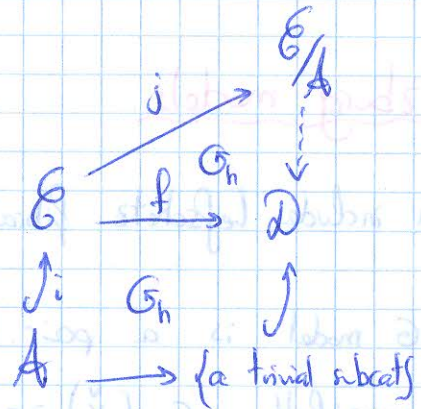 ℰ/𝒜
j
G_h
ℰ f 𝒟
i G_h
𝒜 {a trivial subcat}